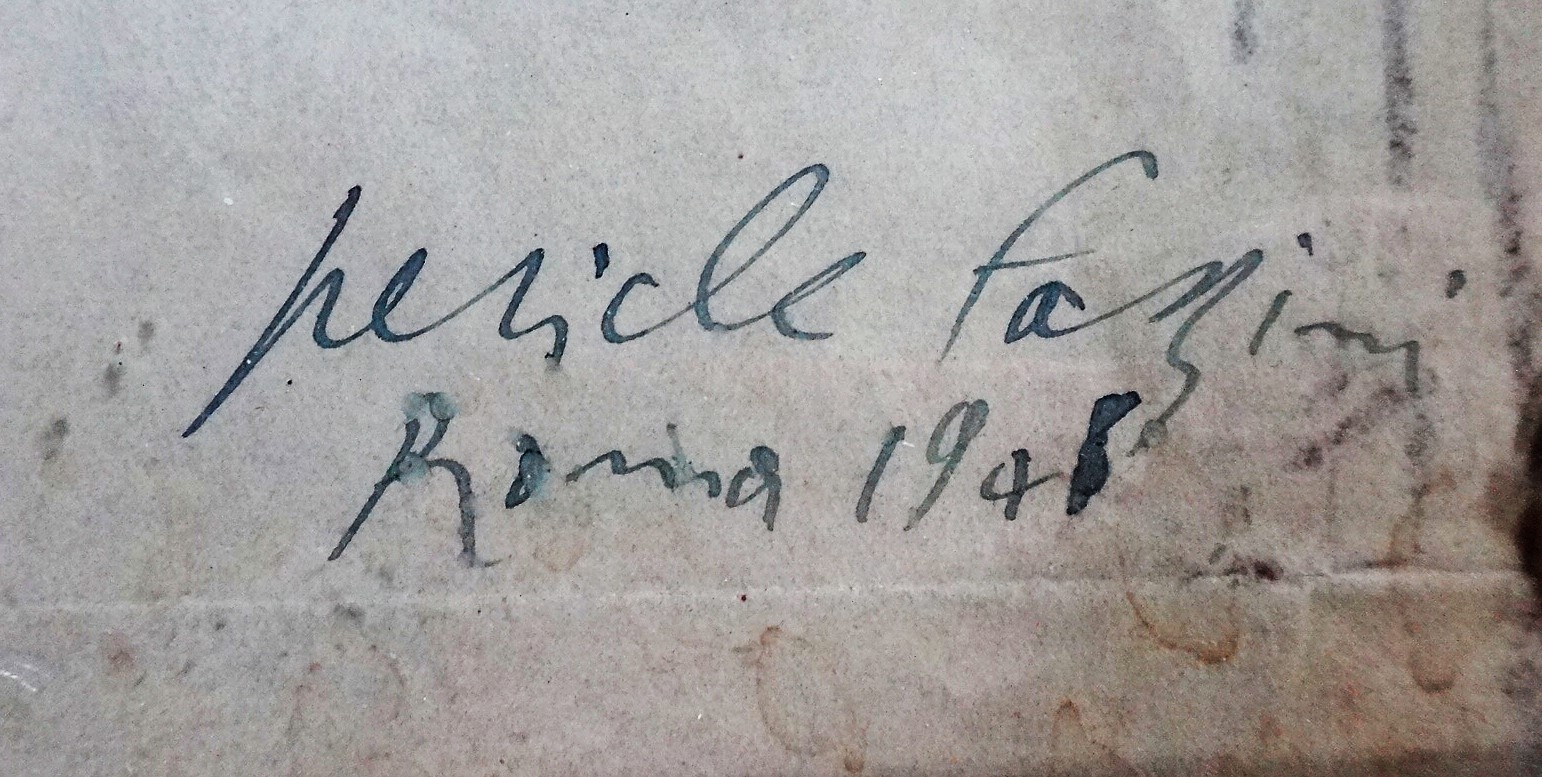 pericle fazzini
Roma 1948